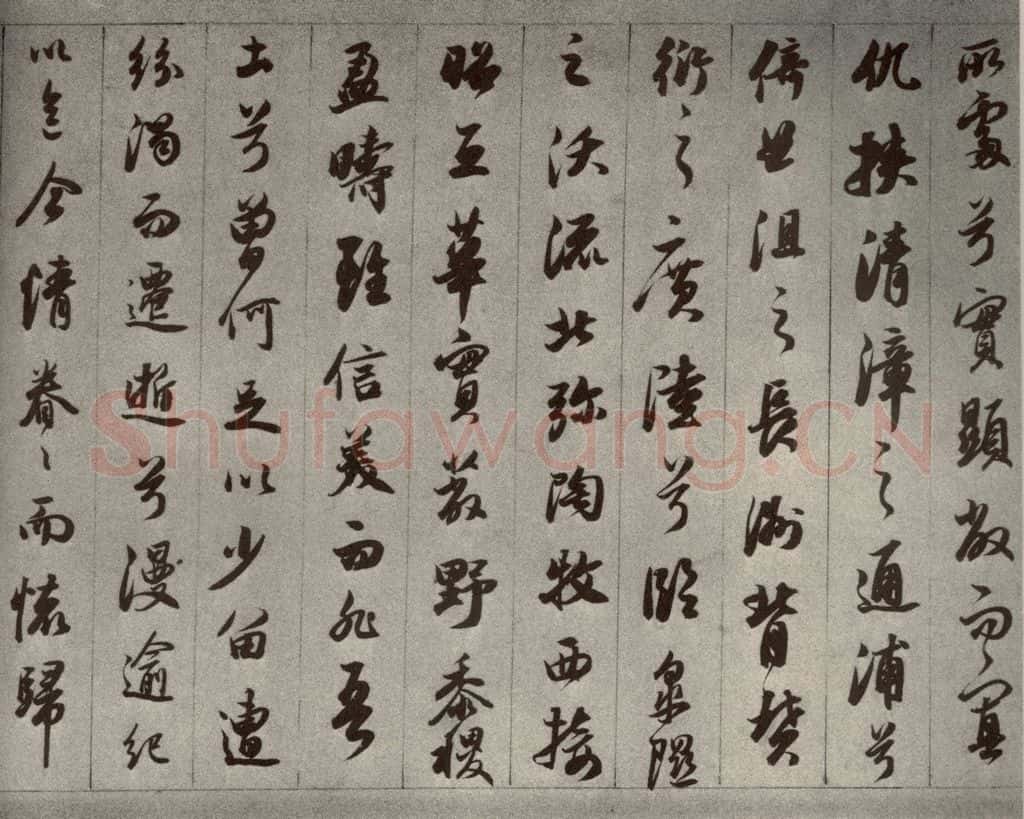 所處兮實顯敞而寡
仇挾清漳之通浦兮
倚曲沮之長洲背墳
衍之廣陸兮臨皋隰
之沃流北弥陶牧西接
昭丘華實蔽野黍稷
盈疇雖信美而非吾
土兮曾何足以少留遭
紛濁而遷逝兮漫逾紀
以迄今情眷々而懷歸
Shufawang.CN